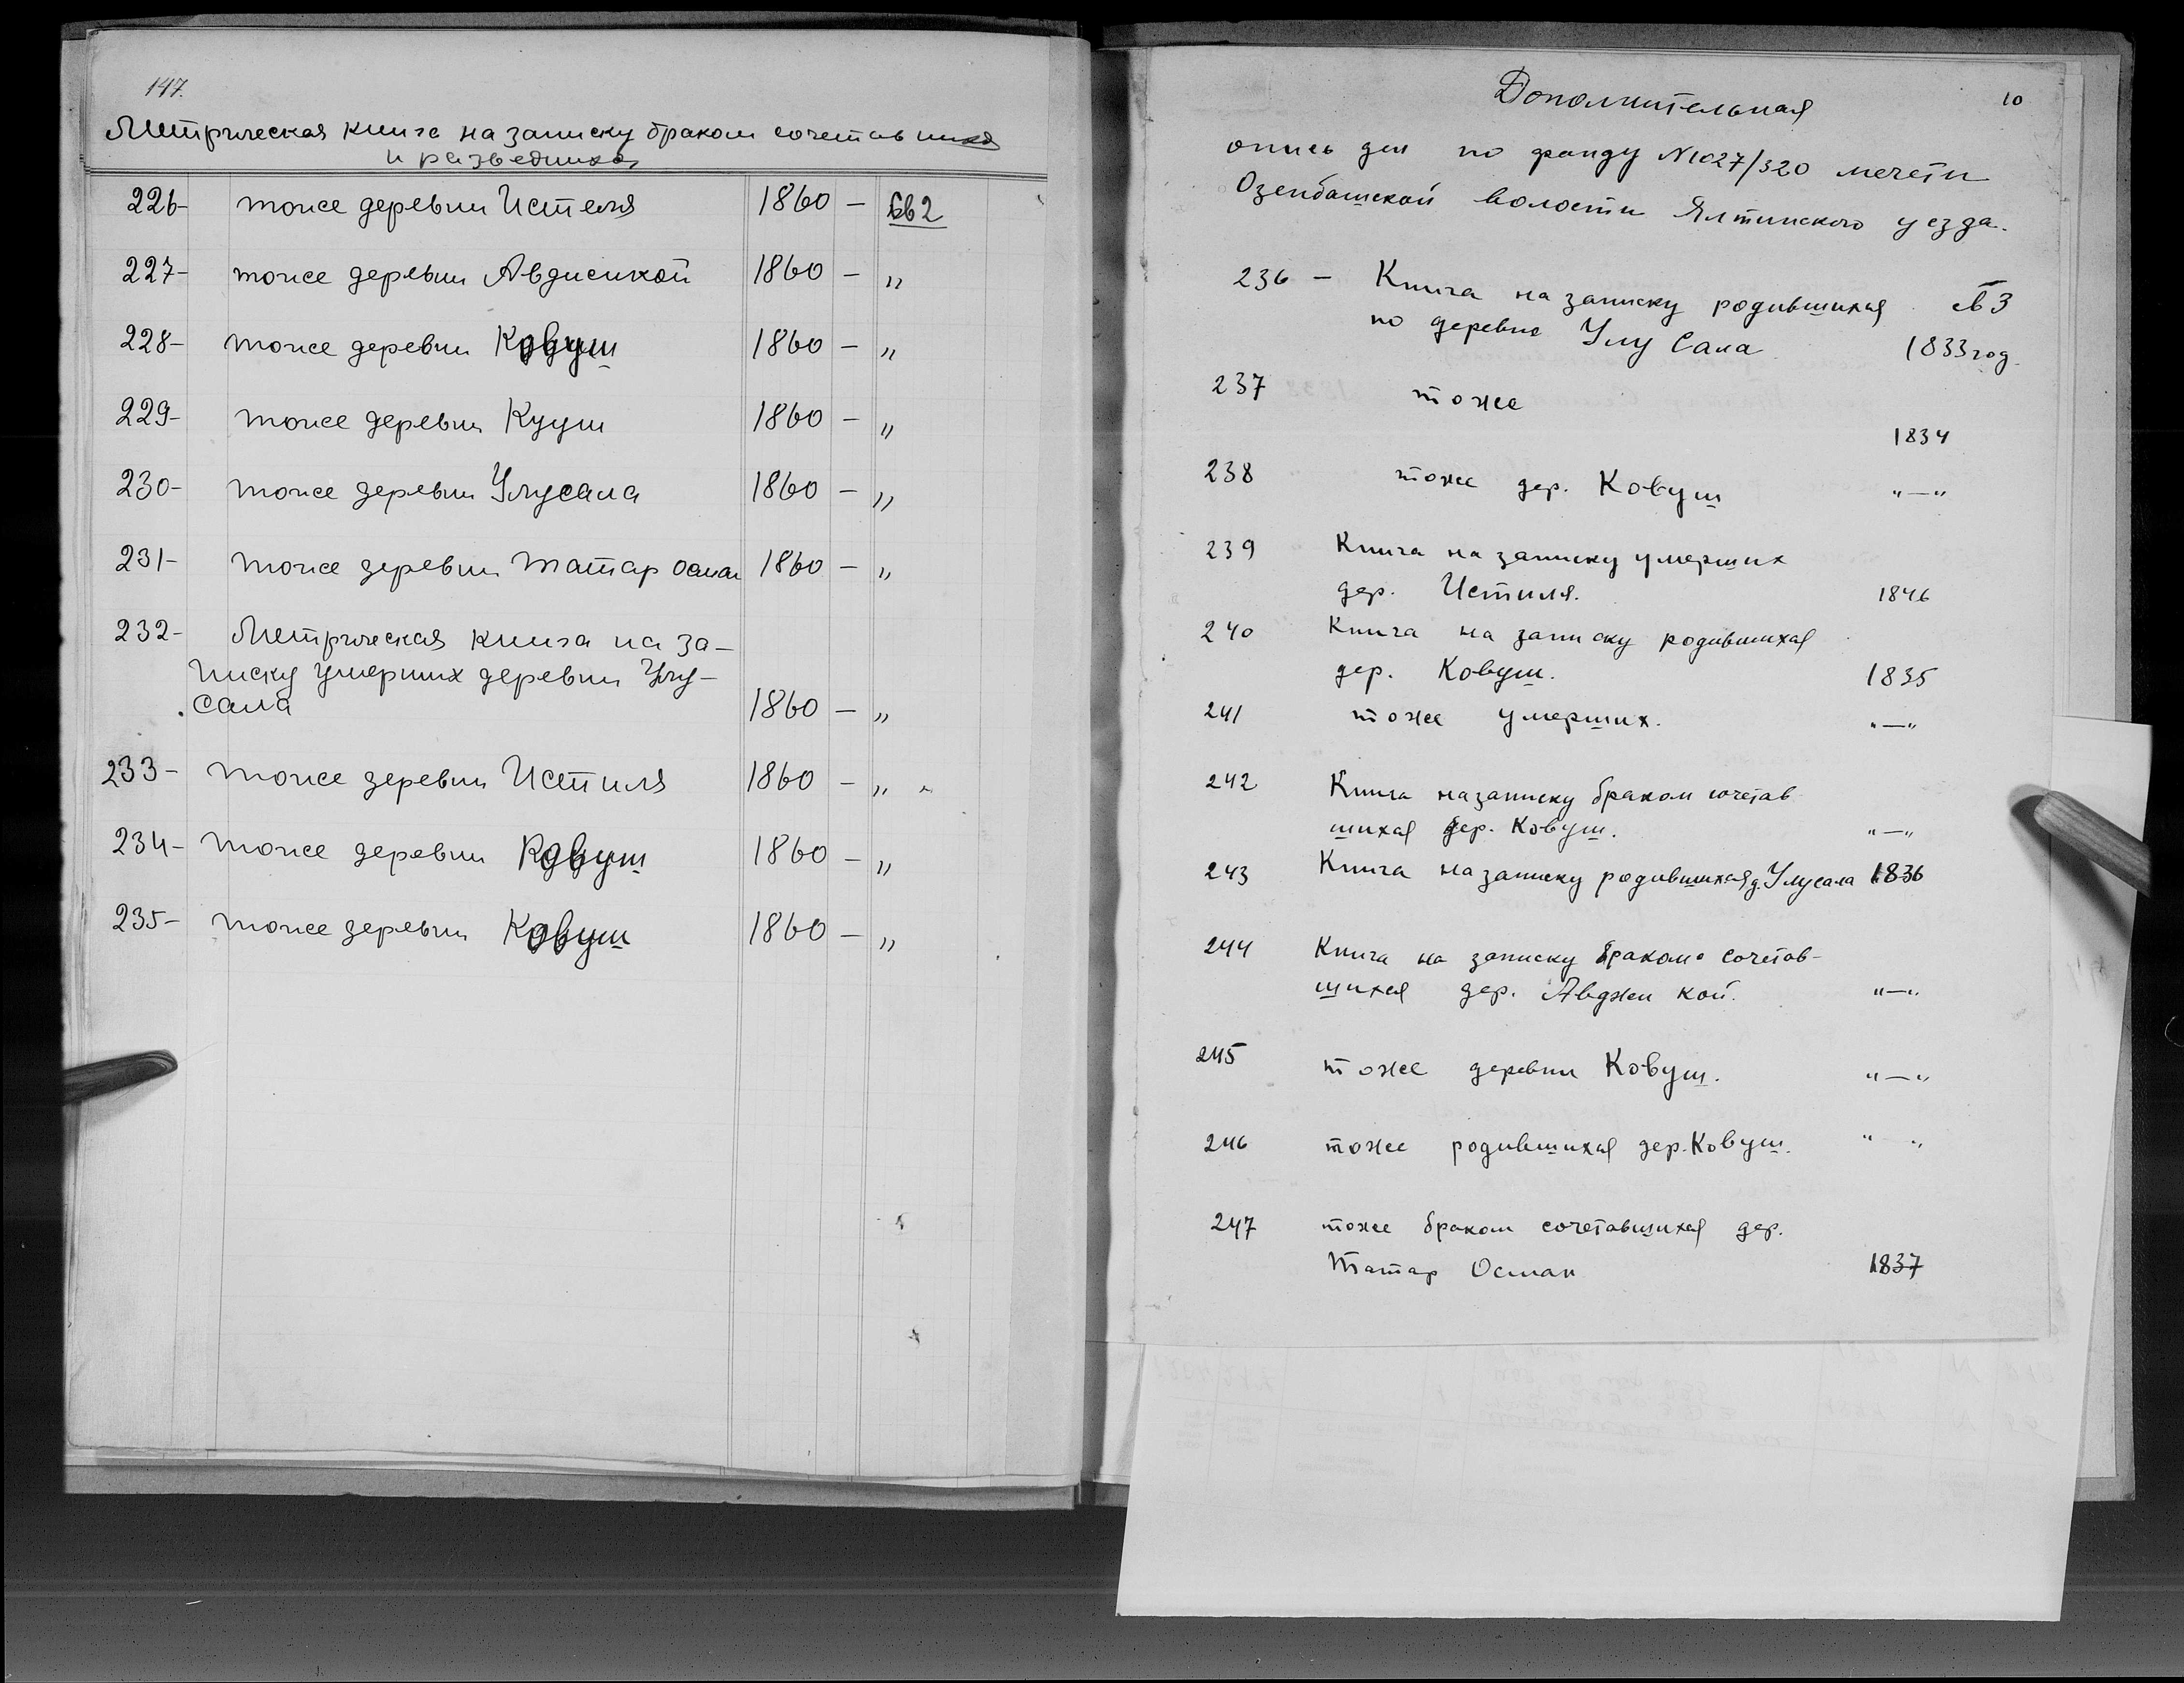 147.
Метрическая книга на записку браком сочетавшихся
и разведшихся
226- тоже деревни Истеля 1860 - св2
227- тоже деревни Авджикой 1860 - „
228- тоже деревни Ковуш 1860 - „
229- тоже деревни Кууш 1860 - „
230- тоже деревни Улусала 1860 - „
231- тоже деревни Татар Осман 1860 - „
232- Метрическая книга на за-
писку умерших деревни Улу-
сала 1860 - „
233- тоже деревни Истиля 1860 - „
234- тоже деревни Ковуш 1860 - „
235- тоже деревни Ковуш 1860 - „
10
Дополнительная
опись дел по фонду N1027/320 мечети
Озенбашской волости Ялтинского уезда.
236 - Книга на записку родившихся св 3
по деревне Улу Сала 1833 год.
237 тоже
1834
238 тоже дер. Ковуш "—"
239 Книга на записку умерших
дер. Истиля. 1846
240 Книга на записку родившихся
дер. Ковуш. 1835
241 тоже умерших. "—"
242 Книга на записку браком сочетав
шихся дер. Ковуш. "—"
243 Книга на записку родившихся д. Улусала 1836
244 Книга на записку браком сочетав-
шихся дер. Авджи кой. "—"
245 тоже деревни Ковуш. "—"
246 тоже родившихся дер. Ковуш. " "
247 тоже браком сочетавшихся дер.
Татар Осман 1837